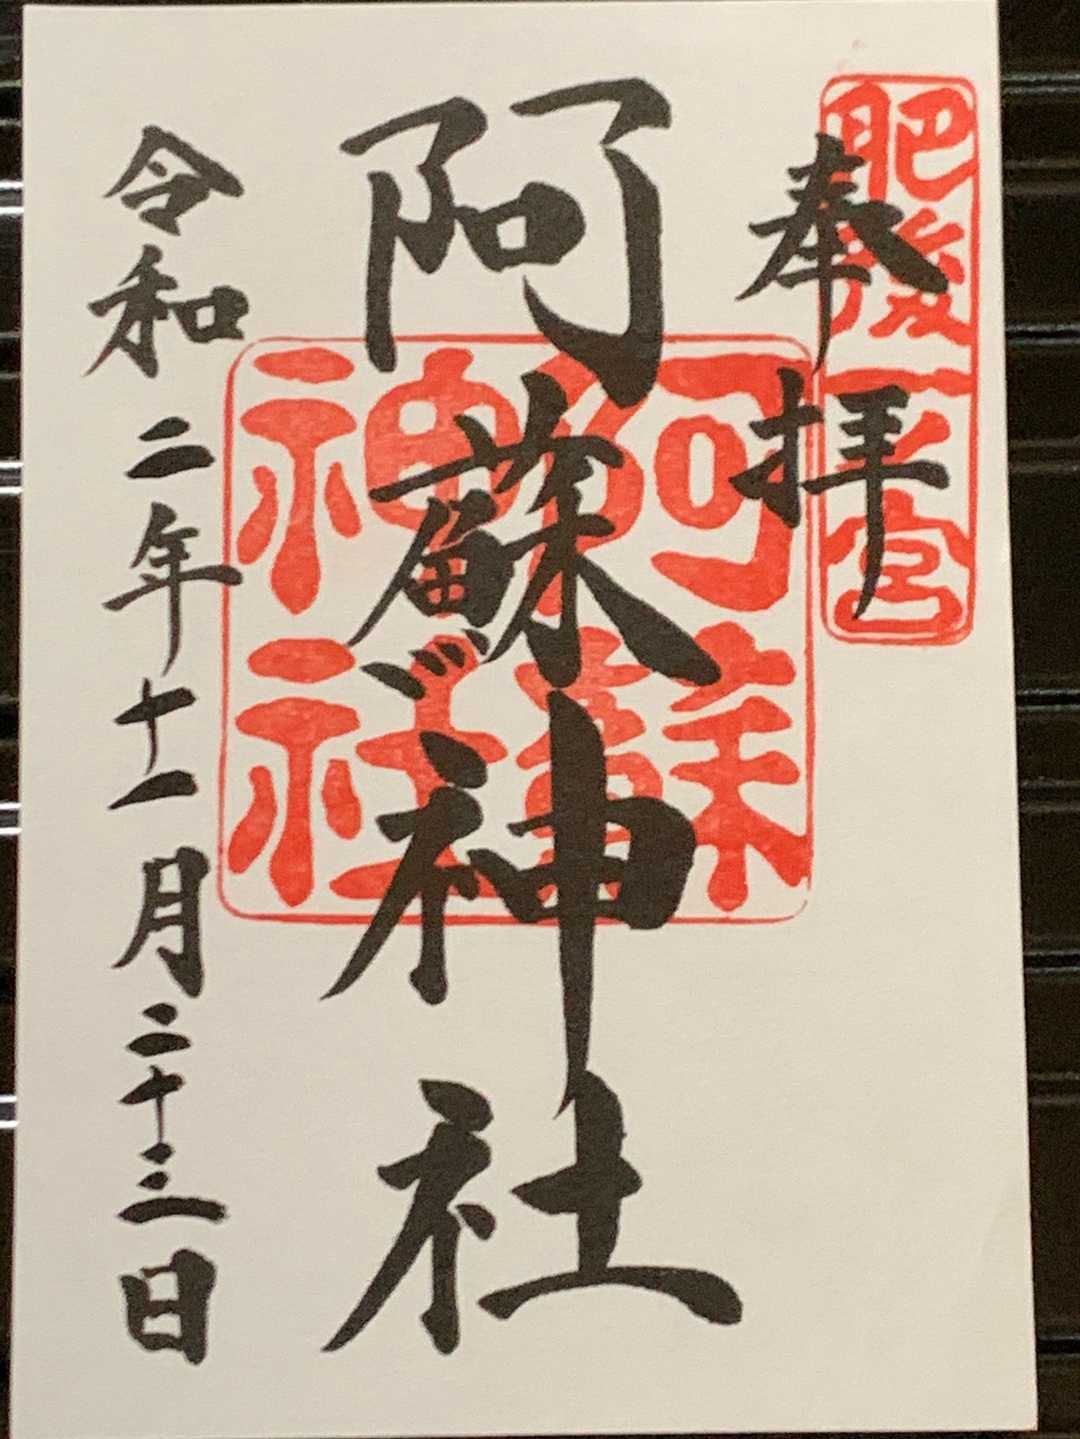 肥後一之宮
奉拝
阿蘇神社
阿蘇神社
令和二年十一月二十三日